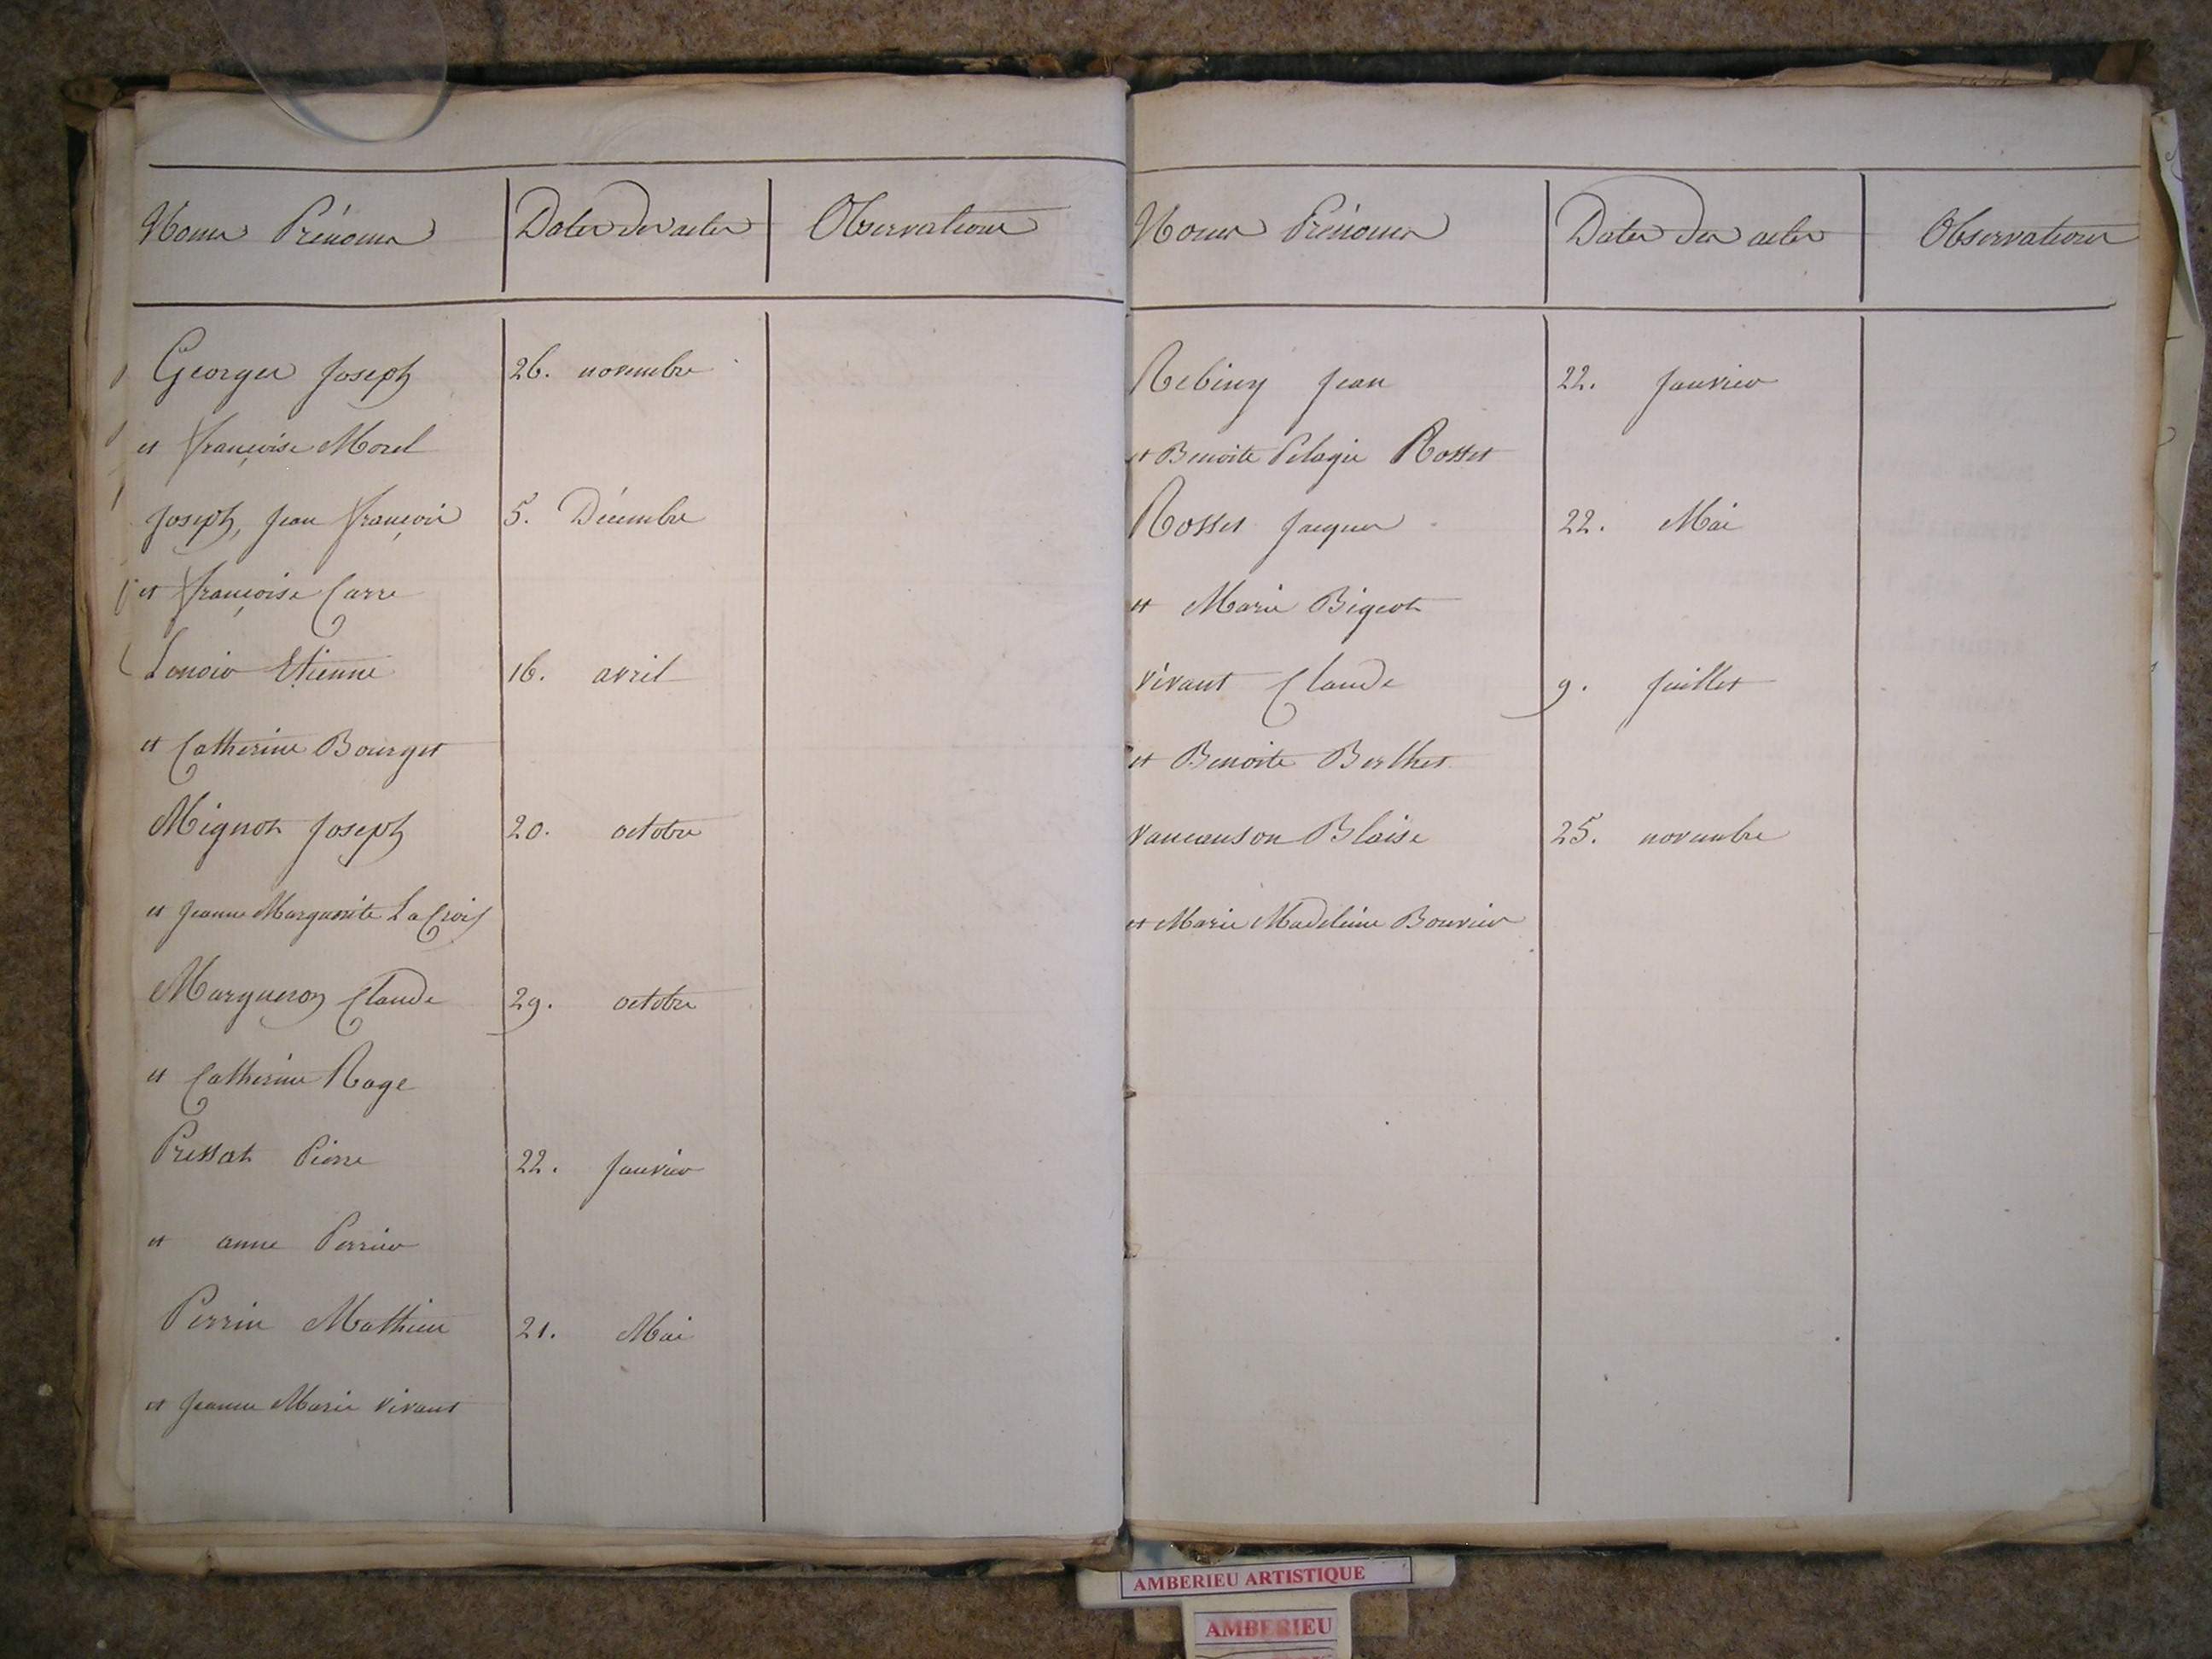 Noms Prénoms Dates des actes Observations
Georges Joseph 26. novembre
et françoise Morel
Joseph, Jean françois 5. Décembre
et françoise Carre
Lenoir Etienne 16. avril
et Catherine Bourget
Mignot Joseph 20. octobre
et Jeanne Marguerite La Croix
Margueron Claude 29. octobre
et Catherine Rage
Pressat Pierre 22. Janvier
et anne Perrier
Perrin Mathieu 21. Mai
et Jeanne Marie vivant
Noms Prénoms Dates des actes Observations
Jean 22. Janvier
et Benoite Pelagie Rosset
Rosset Jacques 22. Mai
et Marie Bigeot
vivant Claude 9. Juillet
et Benoite Berthet
vaucanson Blaise 25. novembre
et Marie Madeleine Bouvier
AMBERIEU ARTISTIQUE
AMBERIEU